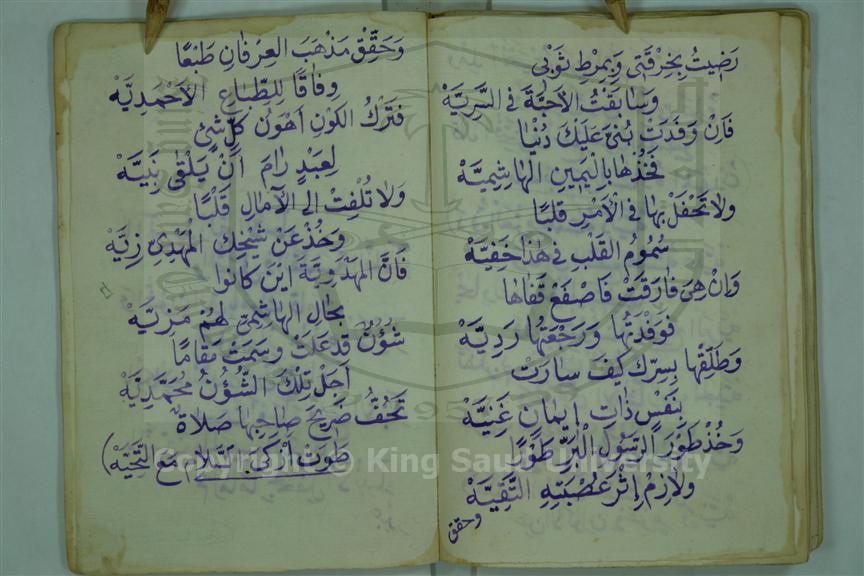 رَضِيتُ بِخِرْقَتِي وَبِمِرْطِ ثَوْبِي
وَسَابَقْتُ الأَحِبَّةَ فِي السَّرِيَّهْ
فَإِنْ وَفَدَتْ بُنَيَّ عَلَيْكَ دُنْيَا
فَخُذْهَا بِالْيَمِينِ الْهَاشِمِيَّهْ
وَلَا تَحْفَلْ بِهَا فِي الأَمْرِ قَلْبًا
سُمُومُ القَلْبِ فِي هٰذَا خَفِيَّهْ
وَإِنْ هِيَ فَارَقَتْ فَاصْفَعْ قَفَاهَا
فَوَفْدَتُهَا وَرَجْعَتُهَا رَدِيَّهْ
وَطَلِّقْهَا بِسِرِّكَ كَيْفَ سَارَتْ
بِنَفْسٍ ذَاتِ إِيمَانٍ غَنِيَّهْ
وَخُذْ طَوْرَ الرَّسُولِ الْبَرِّ طَوْرًا
وَلَازِمْ إِثْرَ عُصْبَتِهِ التَّقِيَّهْ
وحقق
وَحَقِّقْ مَذْهَبَ العِرْفَانِ طَبْعًا
وِفَاقًا لِلطِّبَاعِ الأَحْمَدِيَّهْ
فَتَرْكُ الكَوْنِ أَهْوَنُ كُلِّ شَيْءٍ
لِعَبْدٍ رَامَ أَنْ يَلْقَى نَبِيَّهْ
وَلَا تُلْفِتْ إِلَى الآمَالِ قَلْبًا
وَخُذْ عَنْ شَيْخِكَ الْمَهْدِيِّ زِيَّهْ
فَإِنَّ الْمَهْدَوِيَّةَ أَيْنَ كَانُوا
بِحَالِ الْهَاشِمِيِّ لَهُمْ مَزِيَّهْ
شُؤُنٌ قَدْ عَلَتْ وَسَمَتْ مَقَامًا
أَجَلْ تِلْكَ الشُّؤُنُ مُحَمَّدِيَّهْ
تَحُفُّ ضَرِيحَ صَاحِبِهَا صَلَاةٌ
طَوَتْ أَزْكَى السَّلَامِ مَعَ التَّحِيَّهْ)
Copyright © King Saud University